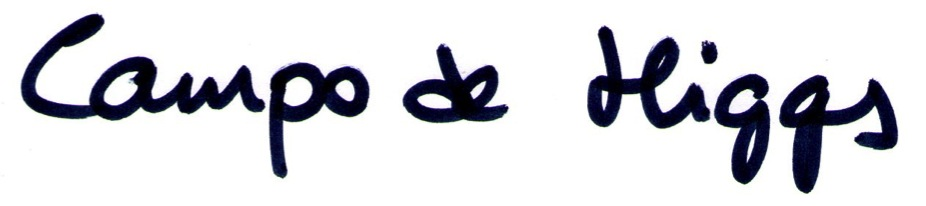 Campo de Higgs